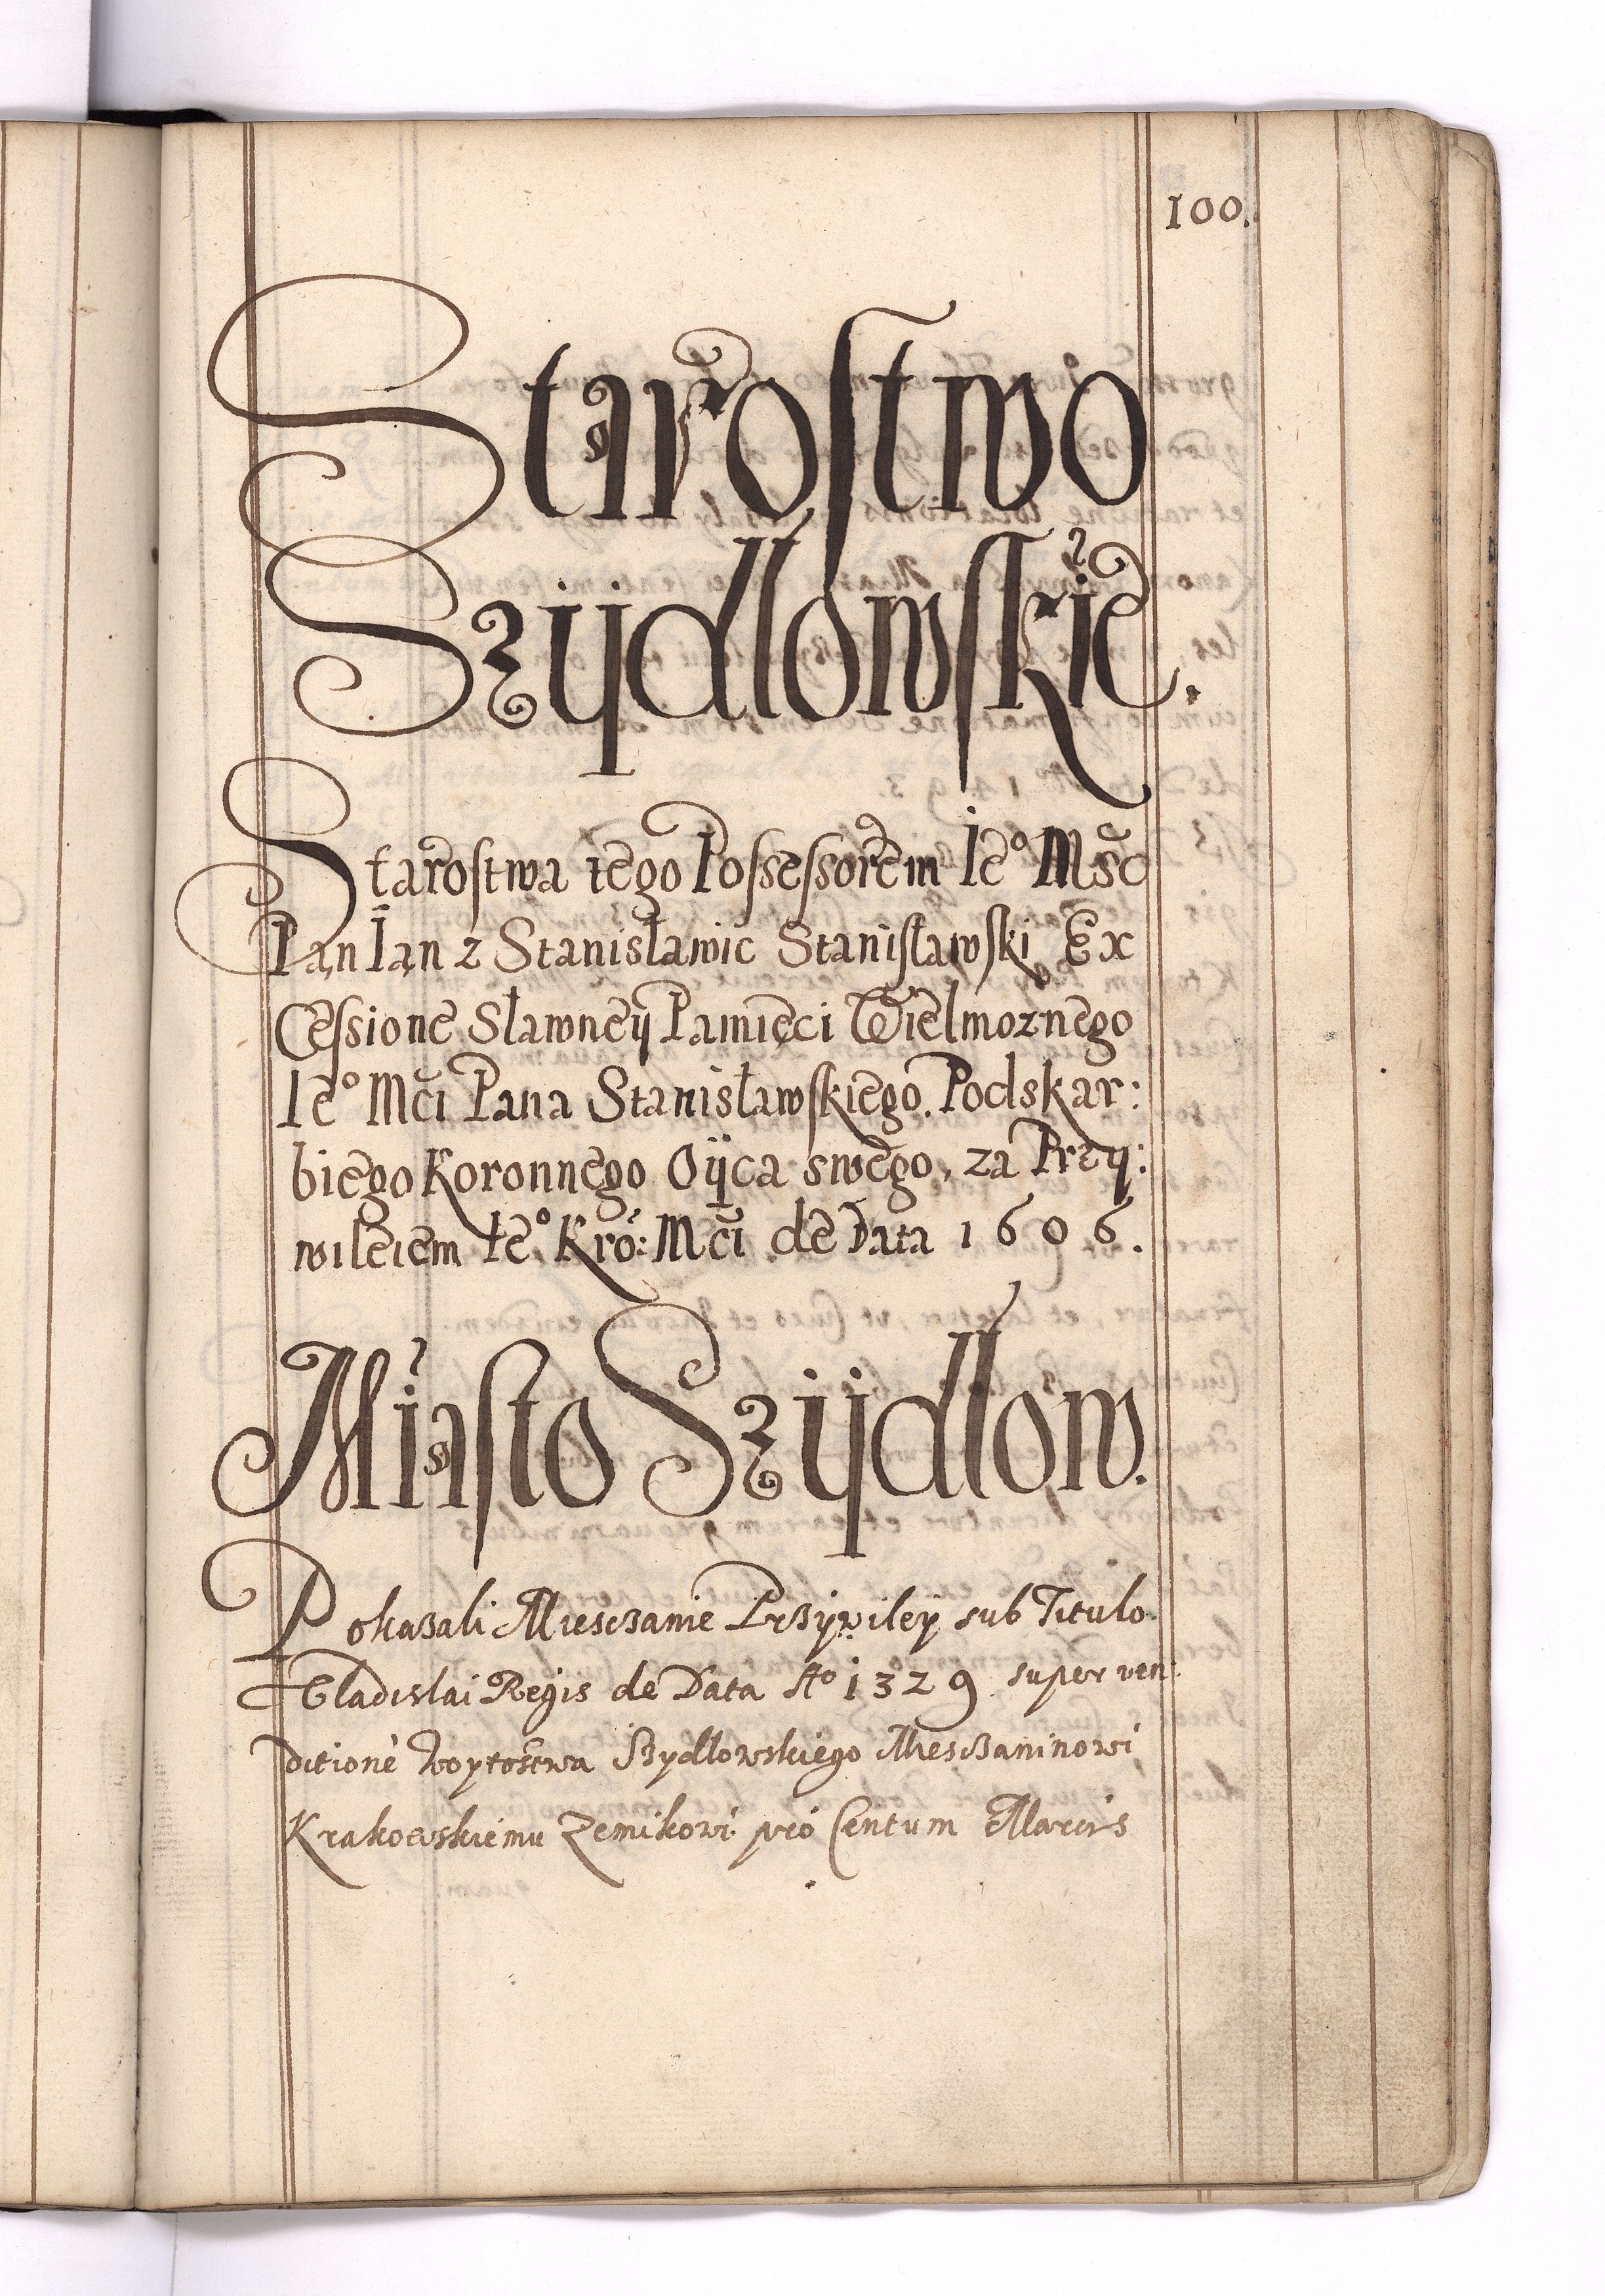 100.
Starostwo
Szÿdłowskie.
Starostwa tego Possessorem Ie° Mśc
Pan Ian z Stanisławic Stanisławski Ex
Cessione Sławneÿ Pamięci Wielmoznego
Ie° Mci Pana Stanisławskiego. Podskar:
biego Koronnego Oÿca swego, za Przy:
wileiem Ie° Kro: Mci de Data 1606.
Miasto Szÿdłow.
Pokazali Miesczanie Przÿwileÿ sub Titulo
Vladislai Regis de Data A° 1329 super ven:
ditione woytostwa Szydłowskiego Miesczaninowi
Krakowskiemu Zemikowi pro Centum Marcis